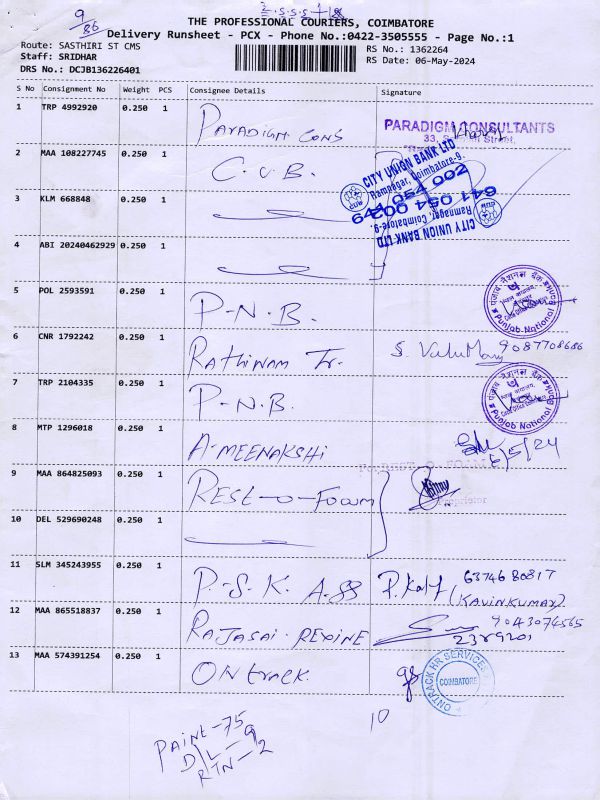 9/86
THE PROFESSIONAL COURIERS, COIMBATORE
Delivery Runsheet - PCX - Phone No.:0422-3505555 - Page No.:1
Route: SASTHIRI ST CMS
Staff: SRIDHAR
DRS No.: DCJB136226401
RS No.: 1362264
RS Date: 06-May-2024
S No Consignment No Weight PCS Consignee Details Signature
1 TRP 4992920 0.250 1 PARADIGM CONS
PARADIGM CONSULTANTS
2 MAA 108227745 0.250 1 C.U.B.
CITY UNION BANK LTD
Ramnagar, Coimbatore-9.
641 054 002
641 054 002
Ramnagar, Coimbatore-9.
CITY UNION BANK LTD
3 KLM 668848 0.250 1
4 ABI 20240462929 0.250 1
5 POL 2593591 0.250 1 P.N.B.
पंजाब नैशनल बैंक
Punjab National Bank
6 CNR 1792242 0.250 1 RATHINAM Tr. 9087708686
7 TRP 2104335 0.250 1 P.N.B.
पंजाब नैशनल बैंक
Punjab National Bank
8 MTP 1296018 0.250 1 A-MEENAKSHI 6/5/24
9 MAA 864825093 0.250 1 REST-O-FOAM
10 DEL 529690248 0.250 1
11 SLM 345243955 0.250 1 P.S.K. ASS 6374680817
(KAVINKUMAR)
12 MAA 865518837 0.250 1 RAJASAI REXINE 9043074565
13 MAA 574391254 0.250 1 ONtrack
ONTRACK HR SERVICES
COIMBATORE
10
PAINT-75
D/L-9
RTN-2